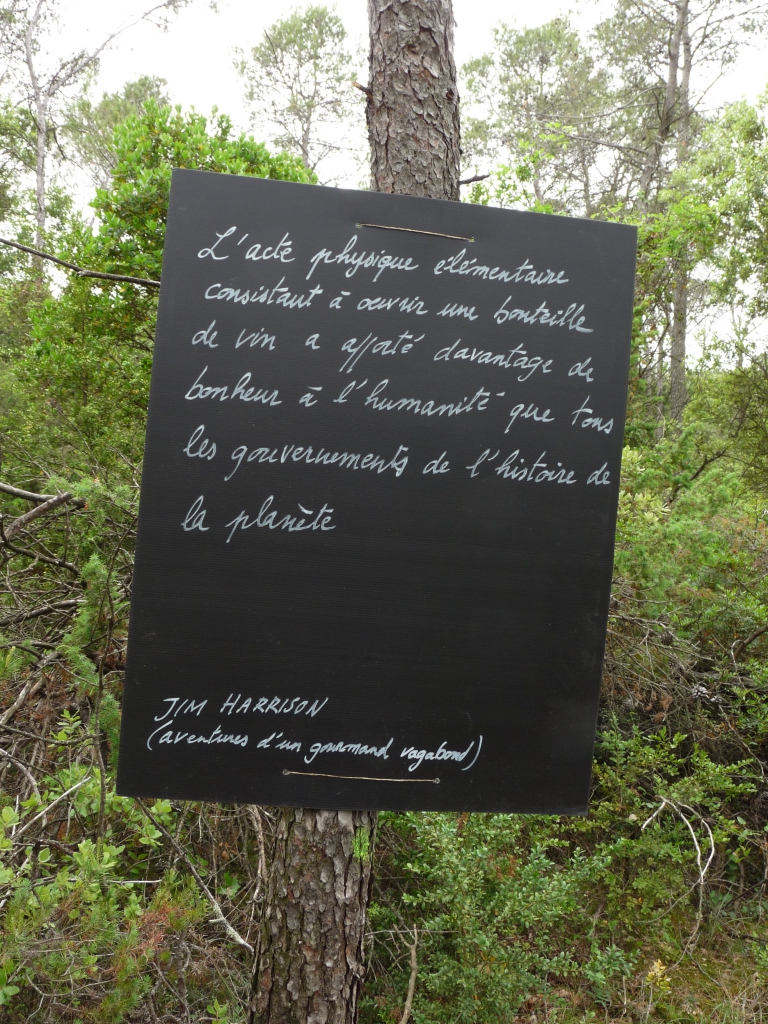 L'acte physique élémentaire
consistant à ouvrir une bouteille
de vin a apporté davantage de
bonheur à l'humanité que tous
les gouvernements de l'histoire de
la planète
JIM HARRISON
(aventures d'un gourmand vagabond)